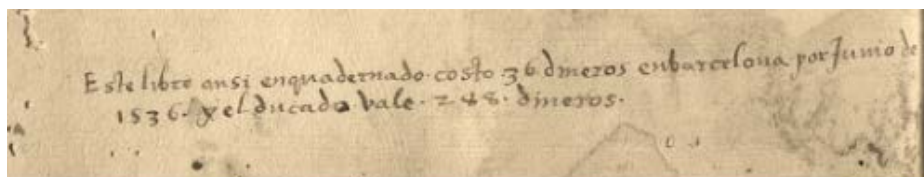 Este libro ansi enquadernado. costo. 36. dineros en barcelona por Junio de
1536. y el ducado vale. 288. dineros.